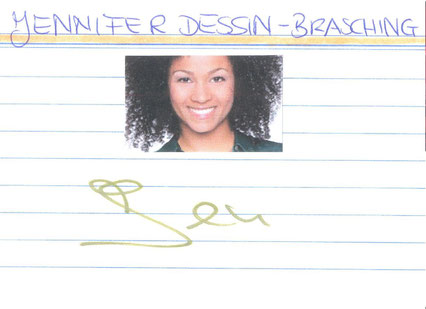 JENNIFER DESSIN-BRASCHING
Jen